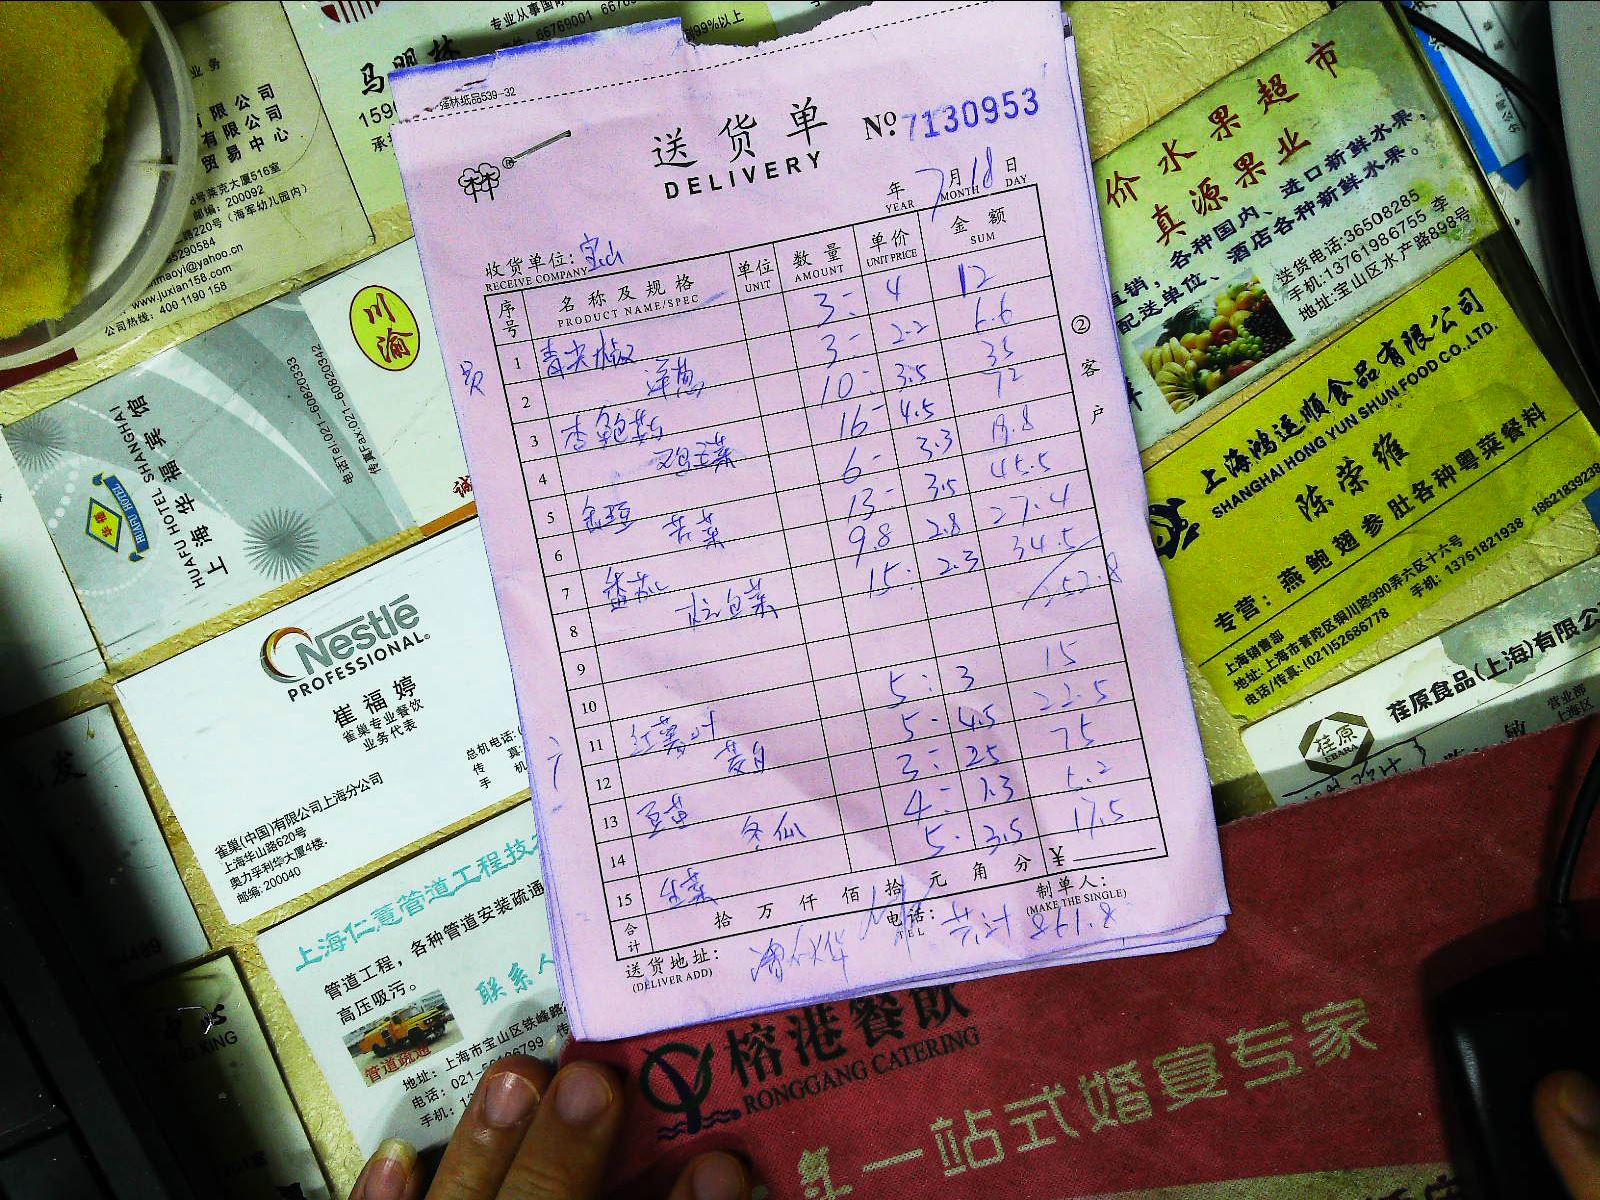 强林纸品539-32
送货单
DELIVERY
№ 7130953
年 7月18日
YEAR MONTH DAY
收货单位: 宝山
RECEIVE COMPANY
序号 名称及规格 单位 数量 单价 金额
PRODUCT NAME/SPEC UNIT AMOUNT UNIT PRICE SUM
1 青尖椒 3 4 12
2 洋葱 3 2.2 6.6
3 杏鲍菇 10 3.5 35
4 16 4.5 72
5 6 3.3 19.8
6 苦菜 13 3.5 45.5
7 番茄 9.8 2.8 27.4
8 包菜 15 2.3 34.5
252.8
9
10
11 红薯叶 5 3 15
12 茭白 5 4.5 22.5
13 豆苗 3 25 75
14 冬瓜 4 1.3 5.2
15 生菜 5 3.5 17.5
合计 拾 万 仟 佰 拾 元 角 分 ¥
送货地址:
(DELIVER ADD)
电话:
TEL
制单人:
(MAKE THE SINGLE)
共计 861.8
②客户
专业从事国际
66769001
99%以上
马明林
业务
有限公司
有限公司
贸易中心
号莱克大厦516室
邮编: 200092
路220号 (海军幼儿园内)
65290584
maoyi@yahoo.cn
www.juxian158.com
公司热线: 400 1190 158
川渝
诚
上海华福宾馆
HUAFU HOTEL SHANGHAI
华福
HUAFU HOTEL
电话Tel:021-60820333
传真Fax:021-60820342
Nestlé
PROFESSIONAL®
崔福婷
雀巢专业餐饮
业务代表
总机电话:
传 真
手 机
雀巢(中国)有限公司上海分公司
上海华山路620号
奥力孚利华大厦4楼
邮编:200040
上海仁薏管道工程技
管道工程,各种管道安装疏通
高压吸污。
联系人
管道疏通
地址:上海市宝山区铁峰路
电话: 021-
手机:
价水果超市
真源果业
直销,各种国内、进口新鲜水果,
配送单位、酒店各种新鲜水果。
送货电话:36508285
手机:13761986755 李
地址:宝山区水产路898号
上海鸿运顺食品有限公司
SHANGHAI HONG YUN SHUN FOOD CO.,LTD.
陈荣维
专营: 燕鲍翅参肚各种粤菜餐料
上海销售部
地址:上海市普陀区铜川路990弄六区十六号
电话/传真: (021)52686778 手机: 13761821938 18621839238
荏原
EBARA
荏原食品(上海)有限公
营业部
上海区
敏
榕港餐饮
RONGGANG CATERING
一站式婚宴专家